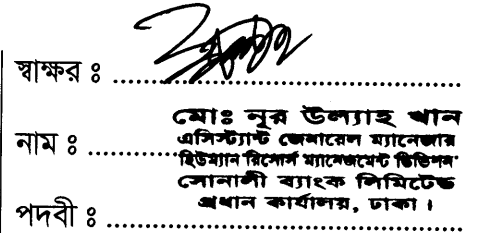 স্বাক্ষর ঃ
মোঃ নূর উল্যাহ খান
নাম ঃ এসিস্ট্যান্ট জেনারেল ম্যানেজার
হিউম্যান রিসোর্স ম্যানেজমেন্ট ডিভিশন
সোনালী ব্যাংক লিমিটেড
পদবী ঃ প্রধান কার্যালয়, ঢাকা।